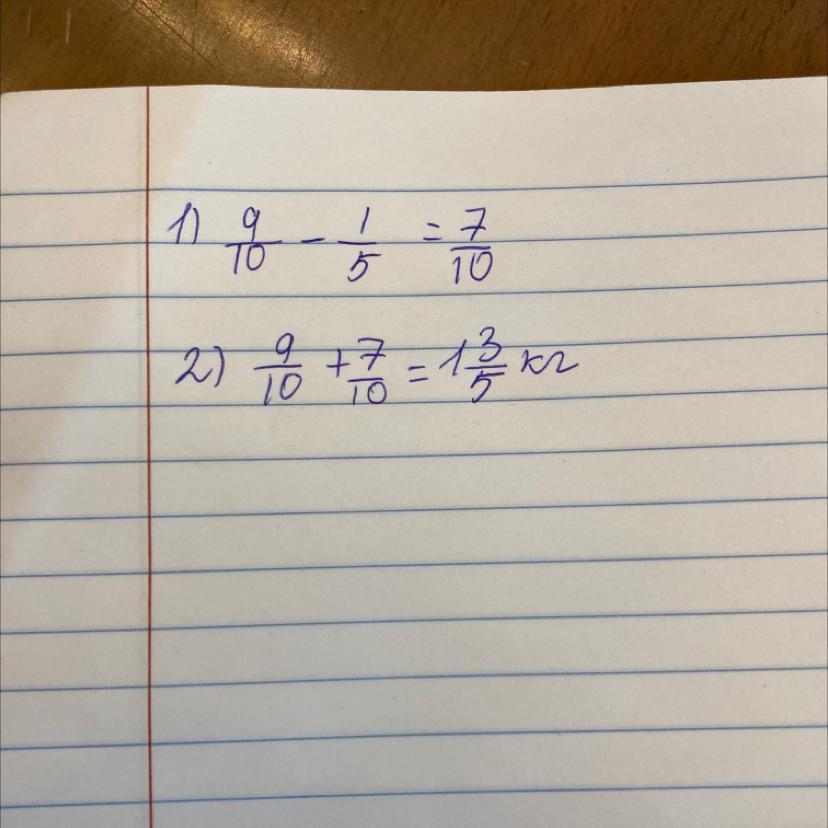 1) 9/10 - 1/5 = 7/10
2) 9/10 + 7/10 = 1 3/5 кг